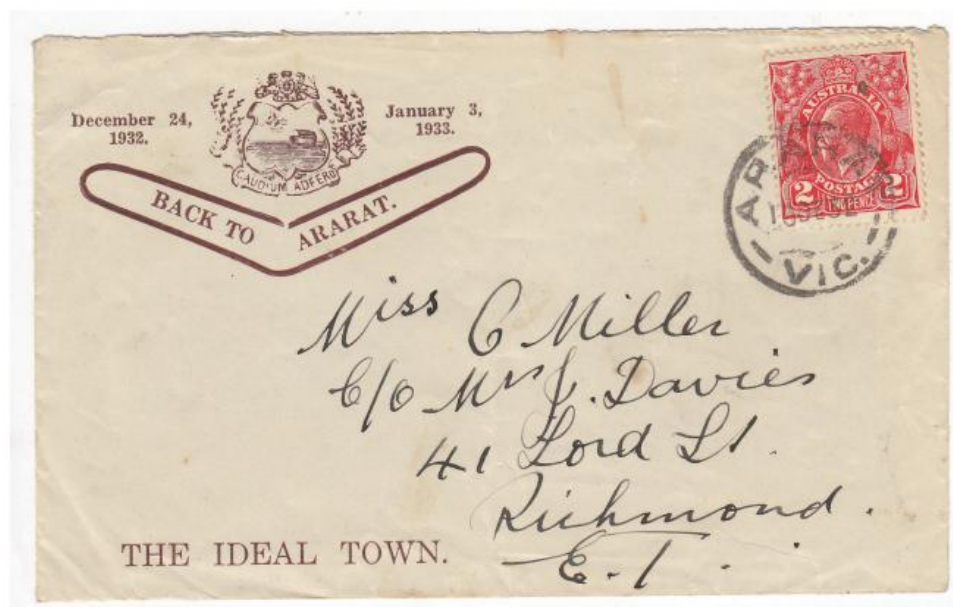 December 24,
1932.
January 3,
1933.
GAUDIUM ADFERO
BACK TO
ARARAT.
AUSTRALIA
2 POSTAGE 2
TWO PENCE
ARARAT
VIC.
Miss C Miller
C/o Mrs J. Davies
41 Lord St.
Richmond.
E. 1.
THE IDEAL TOWN.